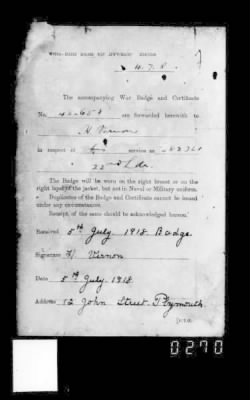 The accompanying War Badge and Certificate
No. are forwarded herewith to
H. Vernon
in respect of service as
22nd Ldn.
The Badge will be worn on the right breast or on the
right lapel of the jacket, but not in Naval or Military uniform.
Duplicates of the Badge and Certificate cannot be issued
under any circumstances.
Receipt of the same should be acknowledged hereon.
Received 8th July. 1918 Badge.
Signature H Vernon
Date 8th July. 1918.
Address 12 John Street Plymouth.
[P.T.O.
0270